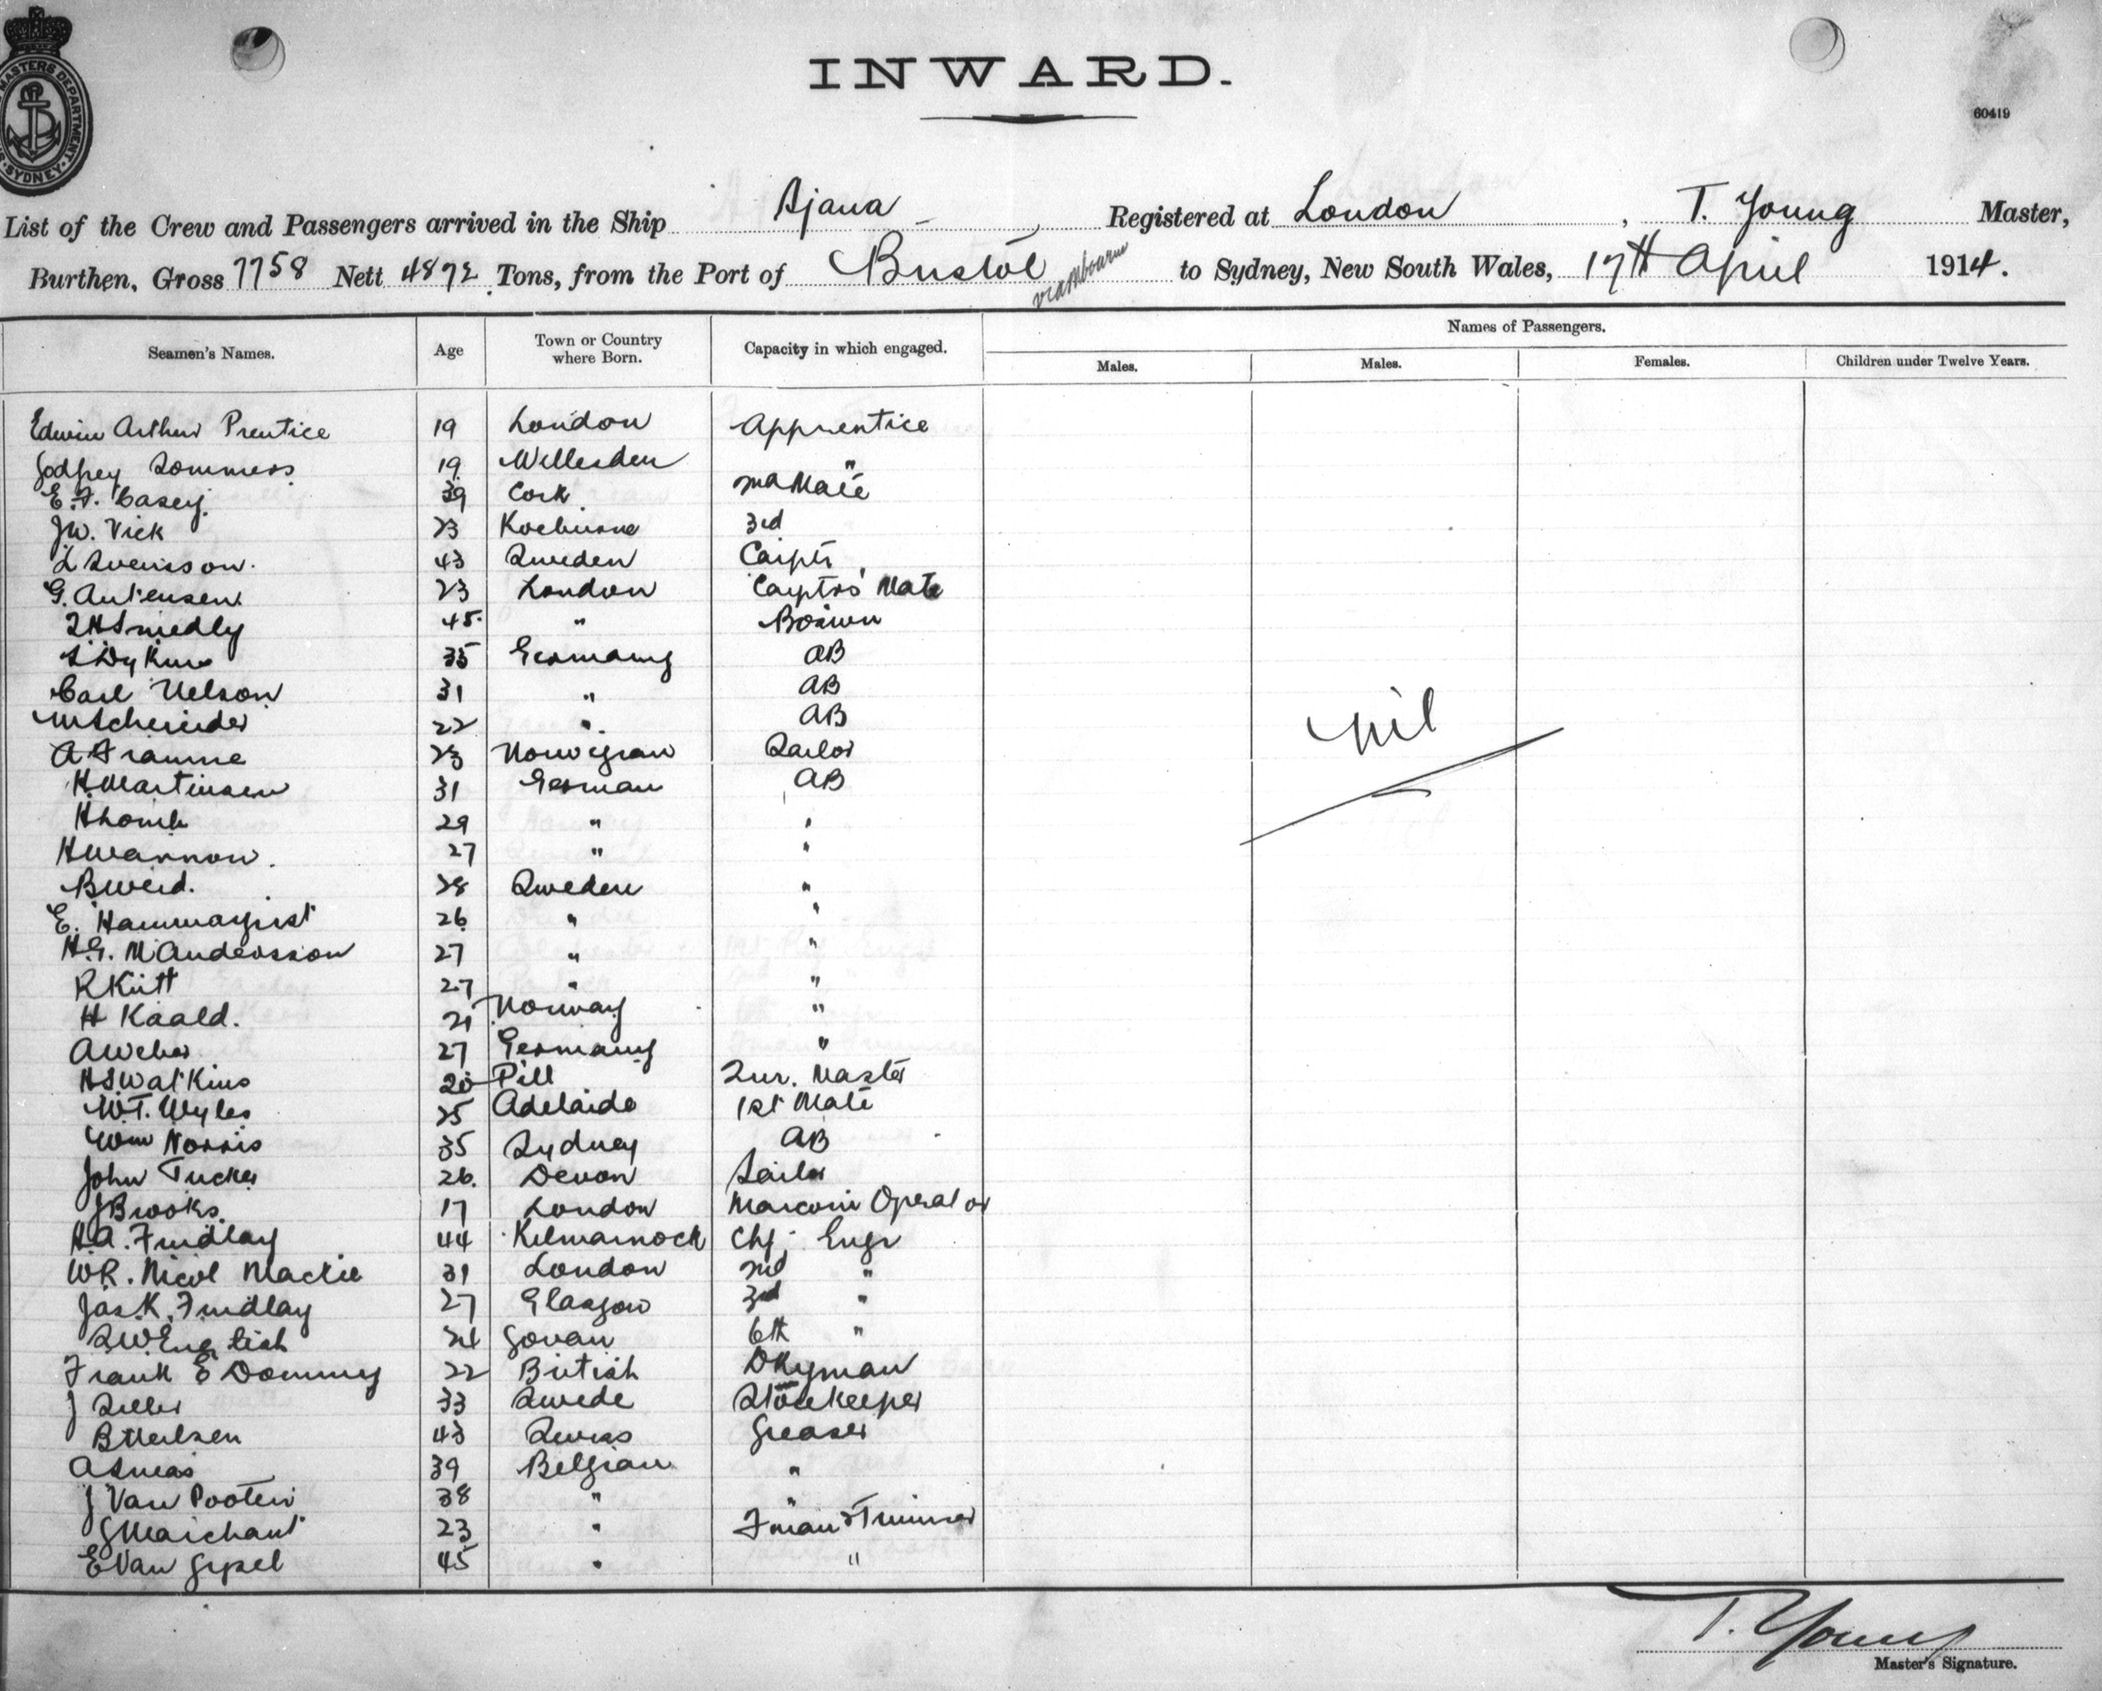 MASTERS DEPARTMENT
SYDNEY
INWARD.
60419
List of the Crew and Passengers arrived in the Ship Ajana Registered at London, T. Young Master,
Burthen, Gross 7758 Nett 4872 Tons, from the Port of Bristol via Mbourne to Sydney, New South Wales, 17th April 1914.
Names of Passengers.
Seamen's Names. Age Town or Country where Born. Capacity in which engaged. Males. Males. Females. Children under Twelve Years.
Edwin Arthur Prentice 19 London Apprentice
Godfrey Sommers 19 Willesden "
E.F. Casey. 39 Cork 2nd Mate
J.W. Vick 23 3rd
L Svensson. 43 Sweden Carptr
G. Antensen. 23 London Carptrs' Mate
Smedly 45. " Bosiwn
S Dykins 35 Germany AB
Carl Nelson 31 " AB
M Schneider 22 " AB
A Framne 23 Norwegian Sailor
H Martinsen 31 German AB
29 " "
H Wannow. 27 " "
B Weid. 28 Sweden "
E. Hammarqvist 26 " "
H.G. M Andersson 27 " "
R Kutt 27 " "
H Kaald. 21 Norway "
A Weber 27 Germany "
H S Watkins 20 Pill Qur. Master
W.T. Wyles 25 Adelaide 1st Mate
Wm Norris 35 Sydney AB
John Tucker 26. Devon Sailor
J Brooks. 17 London Marconi Operator
H.A. Findlay 44 Kilmarnock Chf. Engr
W.R. Nicol Mackie 31 London 2nd "
Jas. K. Findlay 27 Glasgow 3rd "
S W English 24 Govan 6th "
Frank E Dommey 22 British Dkyman
J Seller 33 Swede Storekeeper
B Neilsen 43 Swiss Greaser
A Smeas 39 Belgian "
J Van Pooten 38 " "
G Marchant 23 " Fman & Trimmer
E Van Gysel 45 " "
Nil
T. Young
Master's Signature.